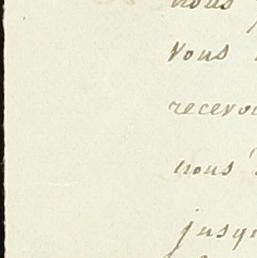 nous
vous
recevo
nous
jusqu